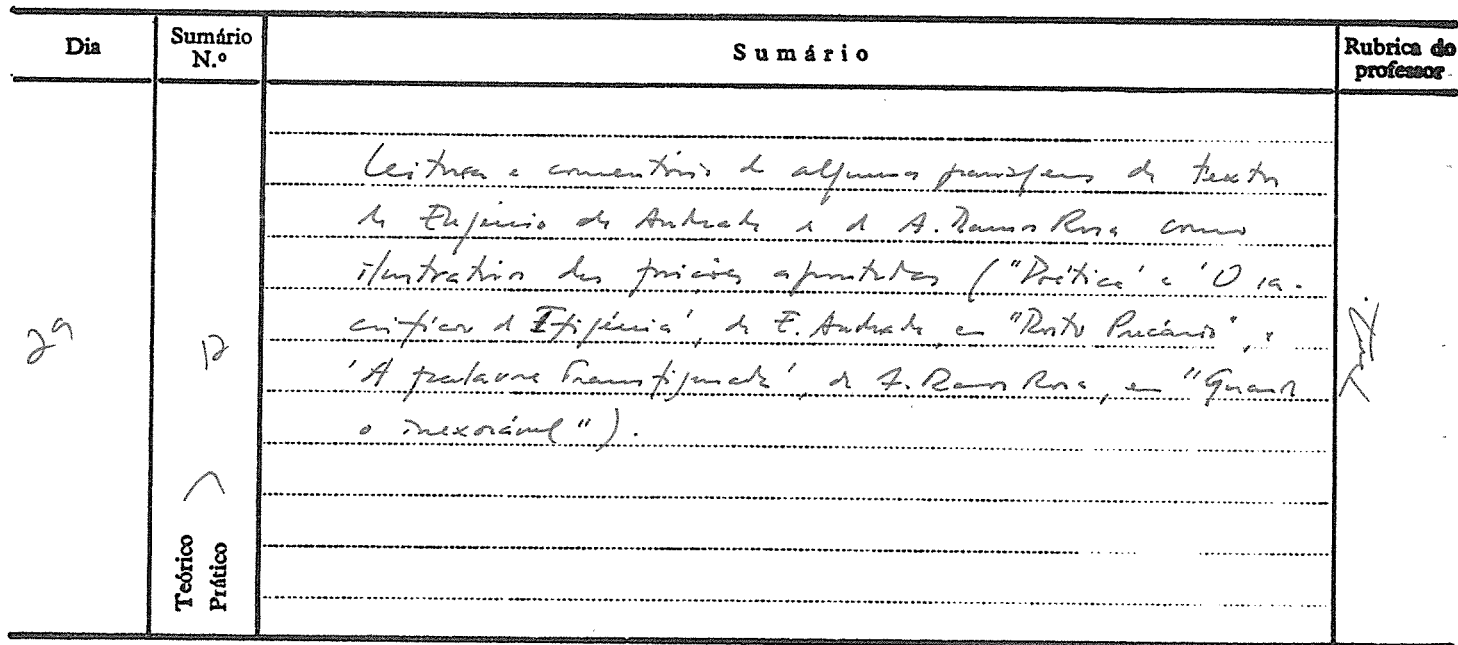 Dia
Sumário N.º
Sumário
Rubrica do professor
Leitura e comentário de algumas passagens de textos
de Eugénio de Andrade e de A. Ramos Rosa como
ilustrativos das posições apontadas ("Poética' e 'O sa-
crifício de Ifigénia', de E. Andrade, em "Rosto Precário", e
'A palavra Transfigurada', de A. Ramos Rosa, em
o inexorável").
12
Teórico
Prático